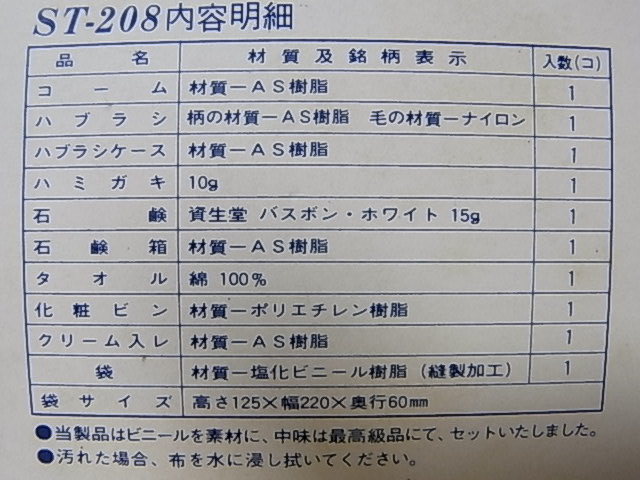 ST-208内容明細
品名 材質及銘柄表示 入数(コ)
コーム 材質ーAS樹脂 1
ハブラシ 柄の材質ーAS樹脂 毛の材質ーナイロン 1
ハブラシケース 材質ーAS樹脂 1
ハミガキ 10g 1
石鹸 資生堂 バスボン・ホワイト 15g 1
石鹸箱 材質ーAS樹脂 1
タオル 綿 100% 1
化粧ビン 材質ーポリエチレン樹脂 1
クリーム入レ 材質ーAS樹脂 1
袋 材質ー塩化ビニール樹脂(縫製加工) 1
袋サイズ 高さ125×幅220×奥行60mm
●当製品はビニールを素材に、中味は最高級品にて、セットいたしました。
●汚れた場合、布を水に浸し拭いてください。